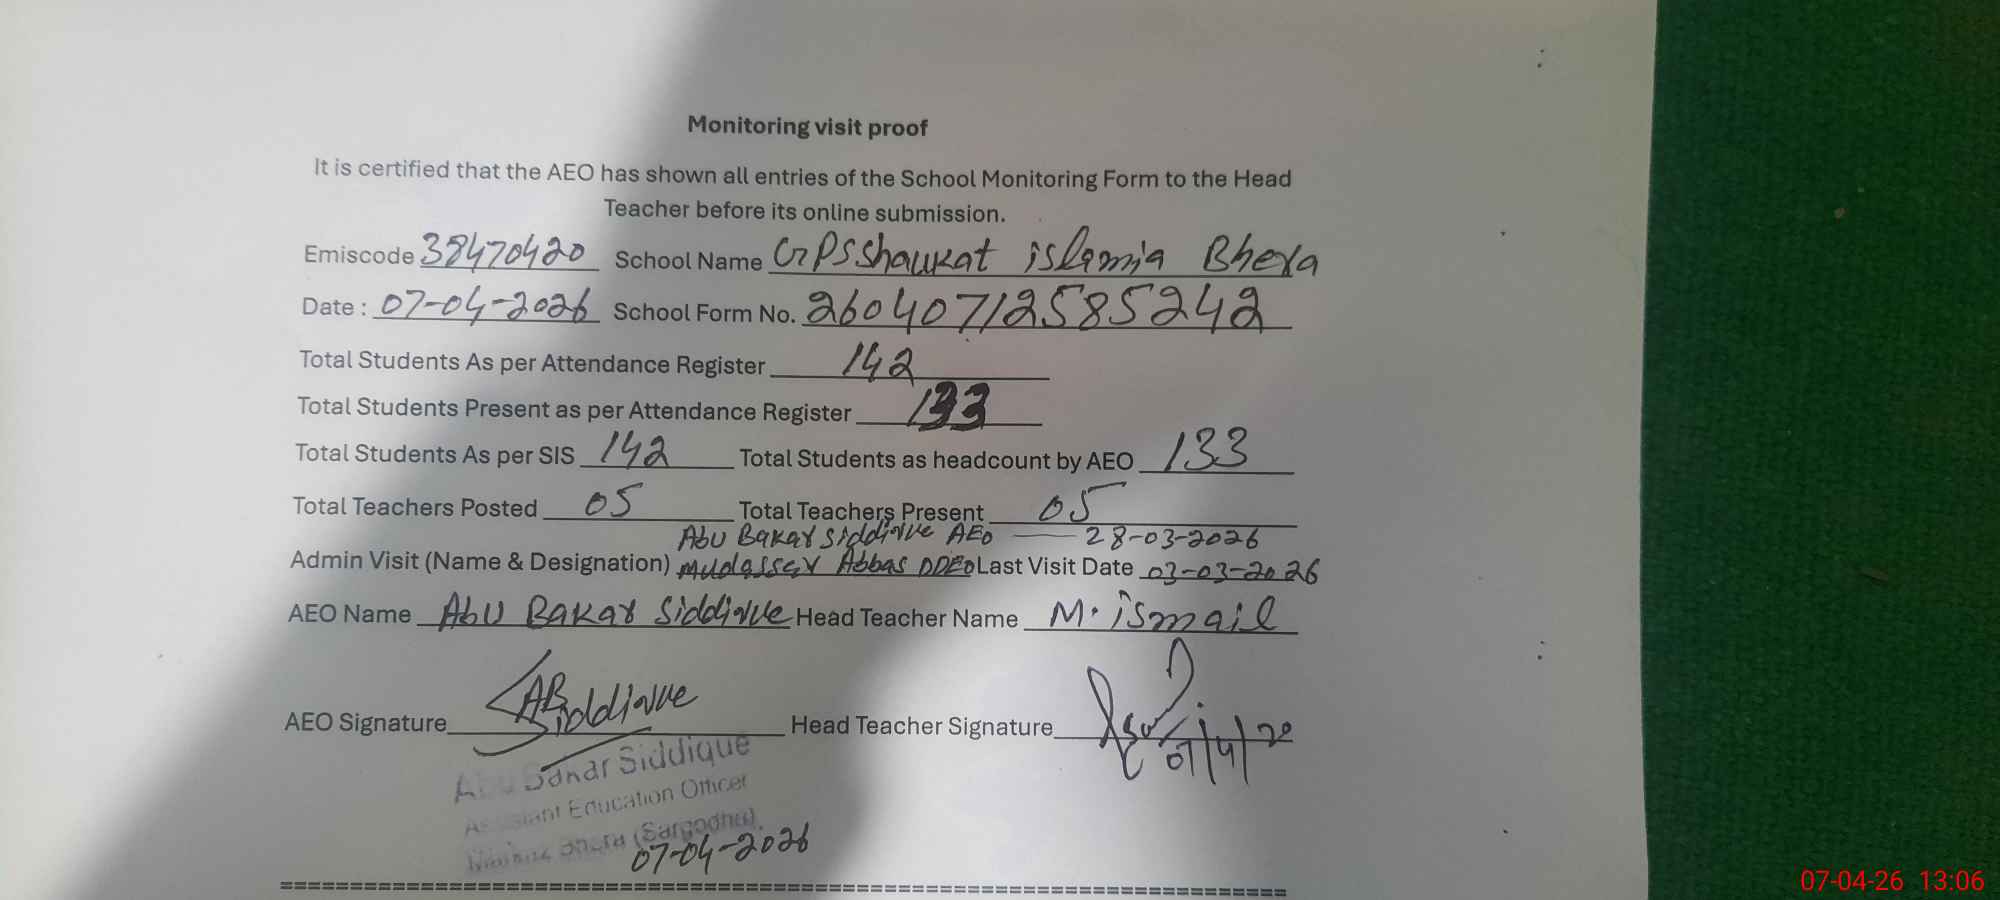 Monitoring visit proof
It is certified that the AEO has shown all entries of the School Monitoring Form to the Head
Teacher before its online submission.
Emiscode 38470420 School Name GPS Shaukat islamia Bhera
Date : 07-04-2026 School Form No. 26040712585242
Total Students As per Attendance Register 142
Total Students Present as per Attendance Register 133
Total Students As per SIS 142 Total Students as headcount by AEO 133
Total Teachers Posted 05 Total Teachers Present 05
Abu Bakar Siddique AEO — 28-03-2026
Admin Visit (Name & Designation) Mudasser Abbas DDEO Last Visit Date 03-03-2026
AEO Name Abu Bakar Siddique Head Teacher Name M. ismail
AEO Signature ABSiddique Head Teacher Signature
07/4/20
Abu Bakar Siddique
Assistant Education Officer
(Sargodha).
07-04-2026
07-04-26 13:06